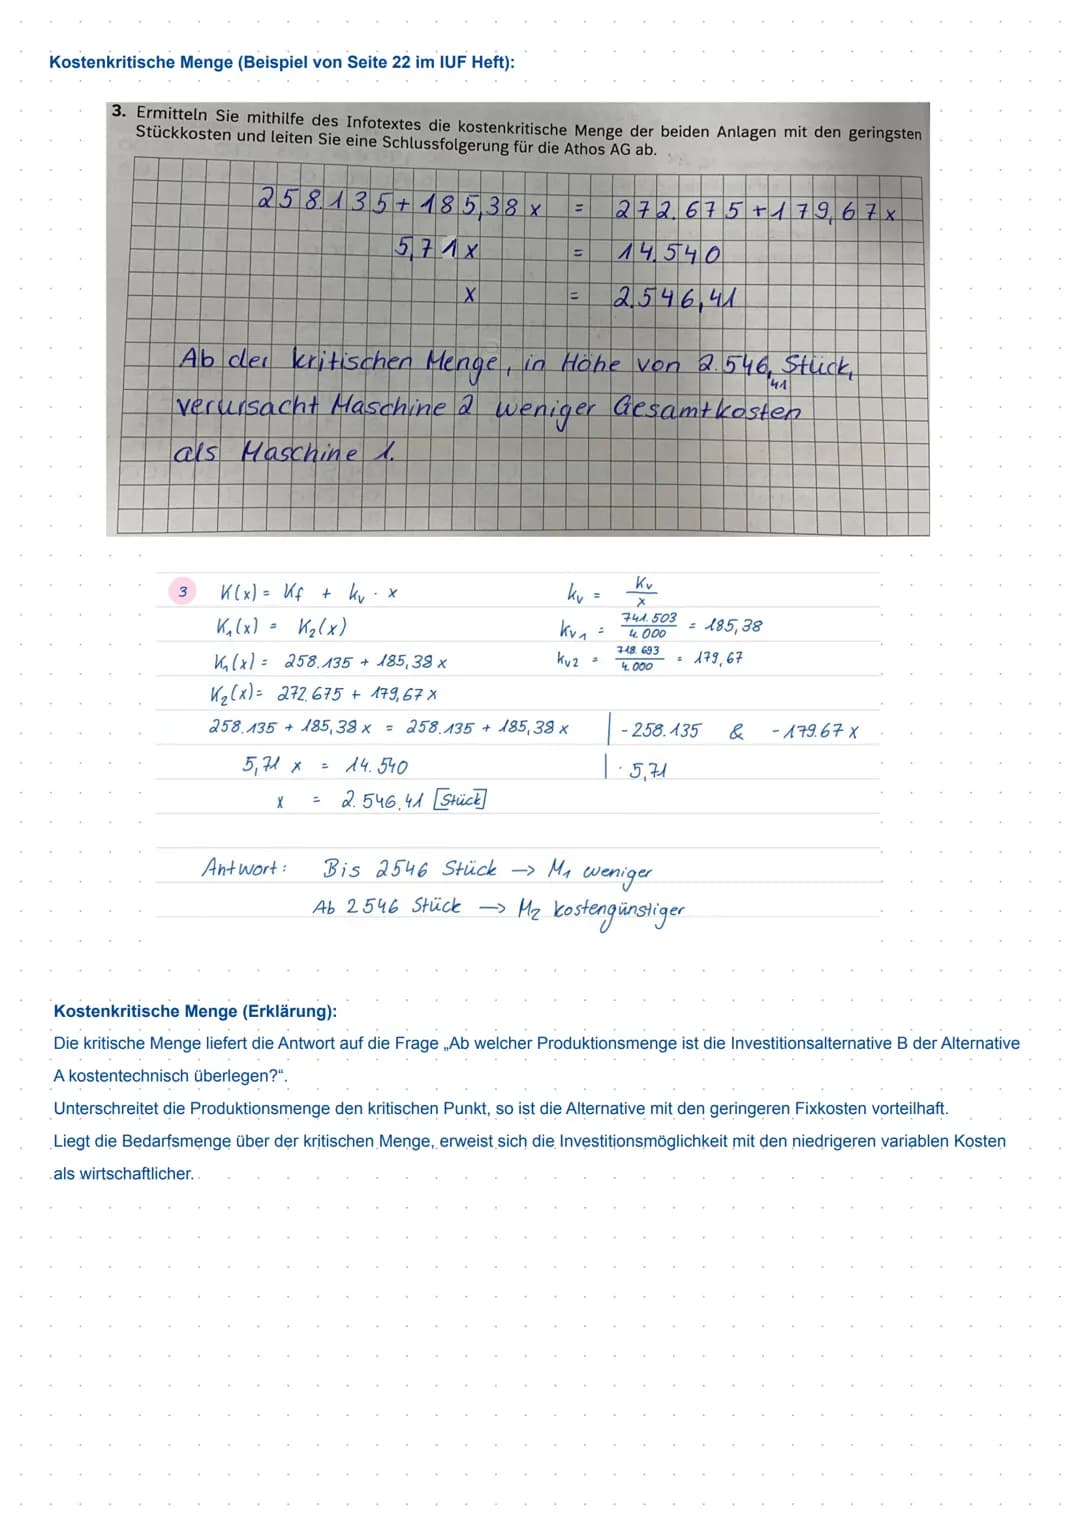 Kostenkritische Menge (Beispiel von Seite 22 im IUF Heft):
3. Ermitteln Sie mithilfe des Infotextes die kostenkritische Menge der beiden Anlagen mit den geringsten
Stückkosten und leiten Sie eine Schlussfolgerung für die Athos AG ab.
258.135 + 185,38 x = 272.675 + 179,67 x
5,71 x = 14.540
x = 2.546,41
Ab der kritischen Menge, in Höhe von 2.546,41 Stück,
verursacht Maschine 2 weniger Gesamtkosten
als Maschine 1.
3 K(x) = Kf + kv · x kv = Kv / x
K1(x) = K2(x) kv1 = 741.503 / 4.000 = 185,38
K1(x) = 258.135 + 185,38 x kv2 = 718.693 / 4.000 = 179,67
K2(x) = 272.675 + 179,67 x
258.135 + 185,38 x = 258.135 + 185,38 x | - 258.135 & - 179.67 x
5,71 x = 14.540 | · 5,71
x = 2.546,41 [Stück]
Antwort: Bis 2546 Stück → M1 weniger
Ab 2546 Stück → M2 kostengünstiger
Kostenkritische Menge (Erklärung):
Die kritische Menge liefert die Antwort auf die Frage „Ab welcher Produktionsmenge ist die Investitionsalternative B der Alternative
A kostentechnisch überlegen?“.
Unterschreitet die Produktionsmenge den kritischen Punkt, so ist die Alternative mit den geringeren Fixkosten vorteilhaft.
Liegt die Bedarfsmenge über der kritischen Menge, erweist sich die Investitionsmöglichkeit mit den niedrigeren variablen Kosten
als wirtschaftlicher.